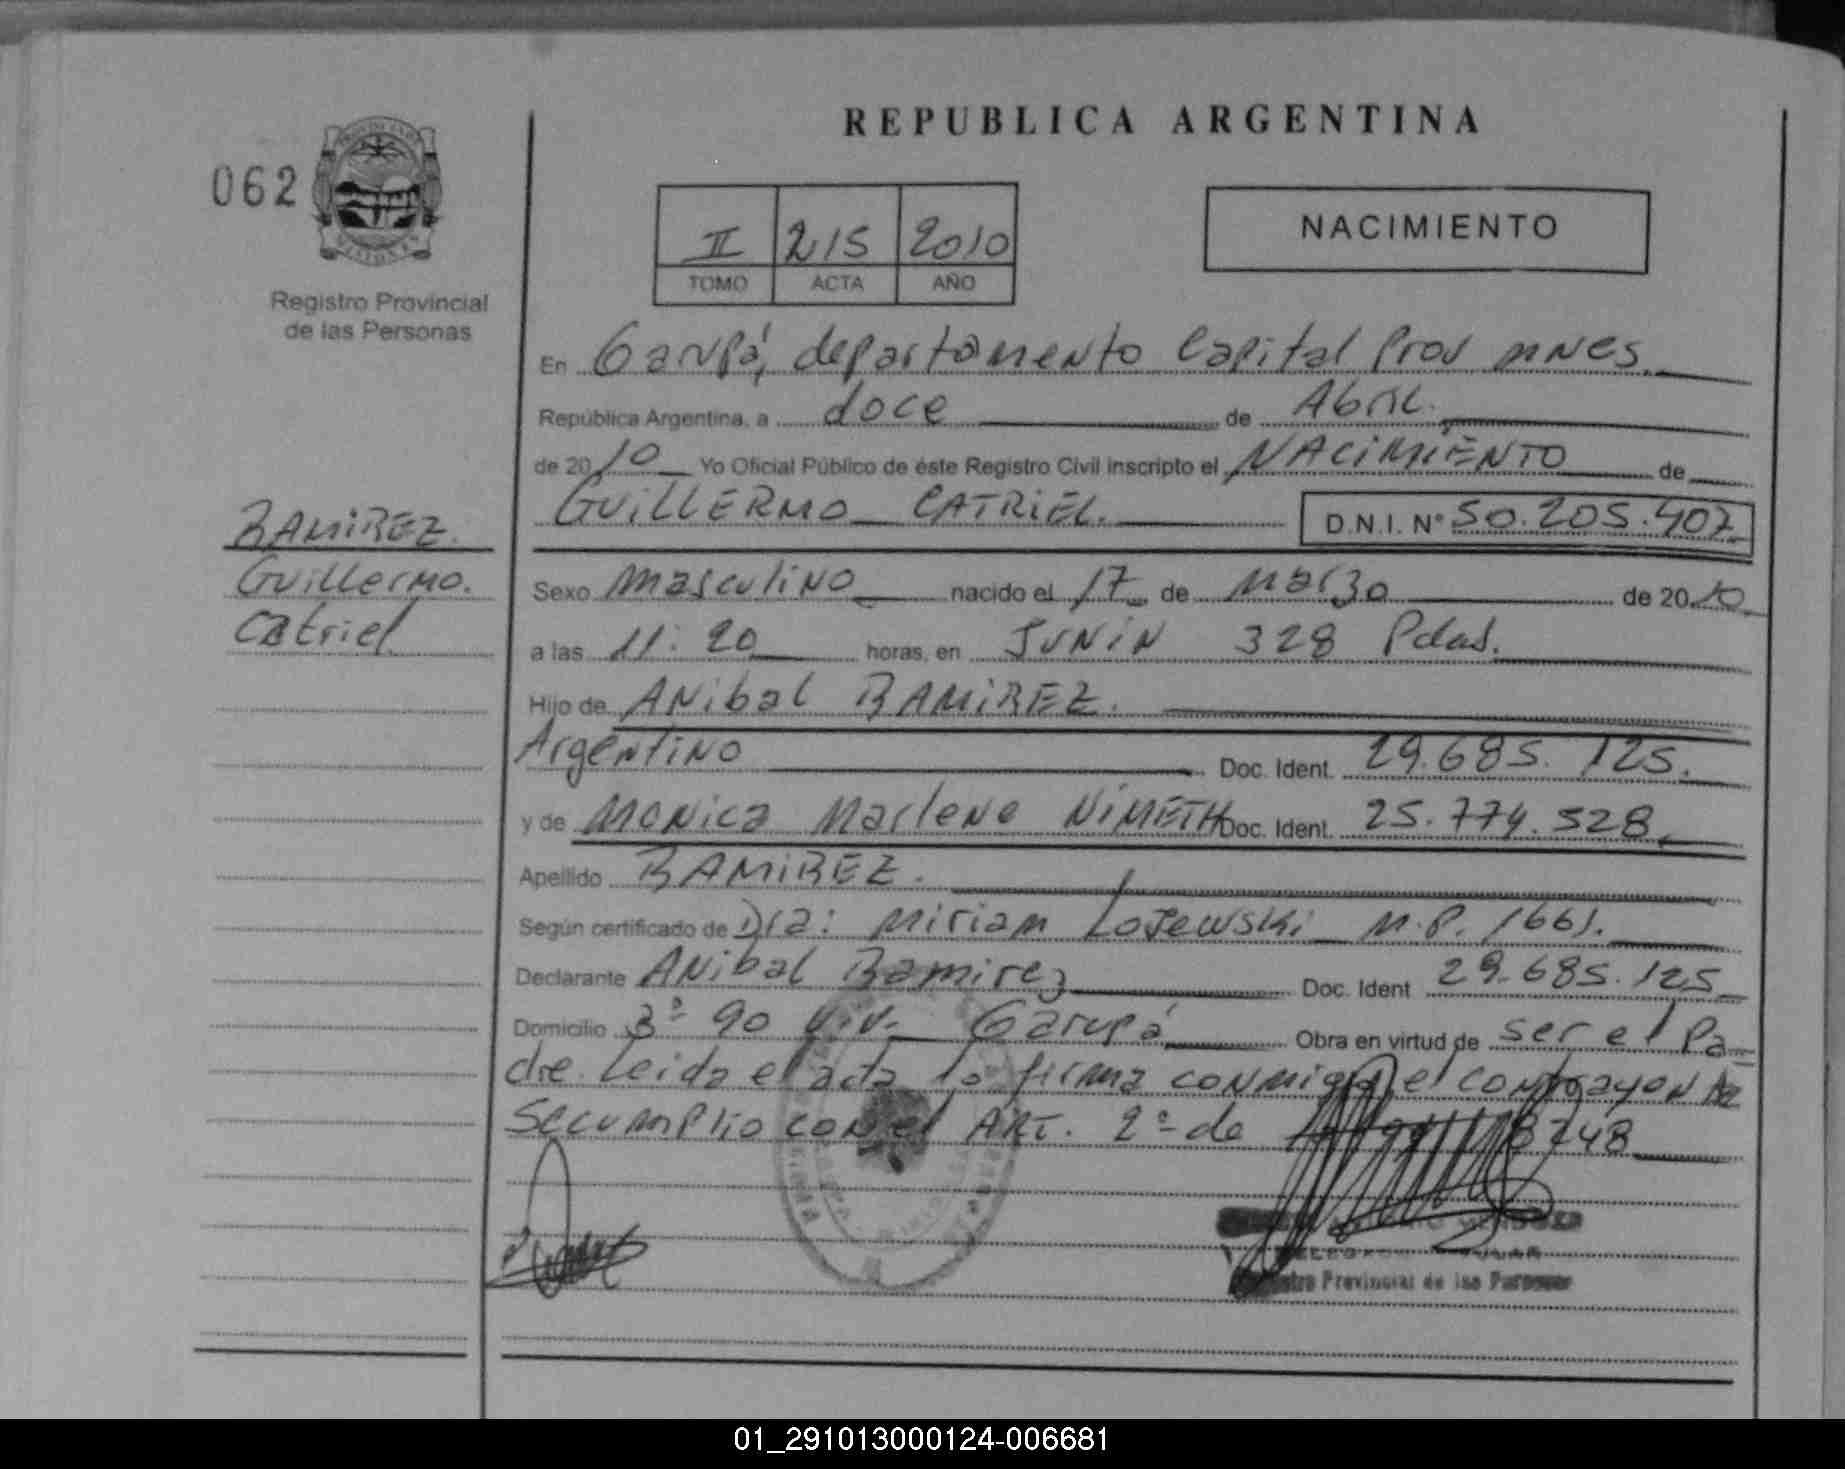 REPUBLICA ARGENTINA
062
Registro Provincial
de las Personas
II 215 2010
TOMO ACTA AÑO
NACIMIENTO
En Garupá, departamento Capital Prov mnes.
República Argentina, a doce de Abril.
de 2010 Yo Oficial Público de éste Registro Civil inscripto el NACIMIENTO de
GUILLERMO CATRIEL. D.N.I. N° 50.205.407
RAMIREZ.
Guillermo.
Catriel
Sexo masculino nacido el 17 de marzo de 2010
a las 11:20 horas, en JUNIN 328 Pdas.
Hijo de Anibal RAMIREZ.
Argentino Doc. Ident. 29.685.125.
y de Monica Marlene NIMETH Doc. Ident. 25.774.528
Apellido RAMIREZ.
Según certificado de Dra: Miriam Lojewski M.P. 1661.
Declarante Anibal Ramirez Doc. Ident 29.685.125
Domicilio 3° 90 viv. Garupá Obra en virtud de ser el Pa
dre Leida el acta la firma conmigo el
Se cumplio con el ART. 2° de 8748
Provincial de las Personas
01_291013000124-006681